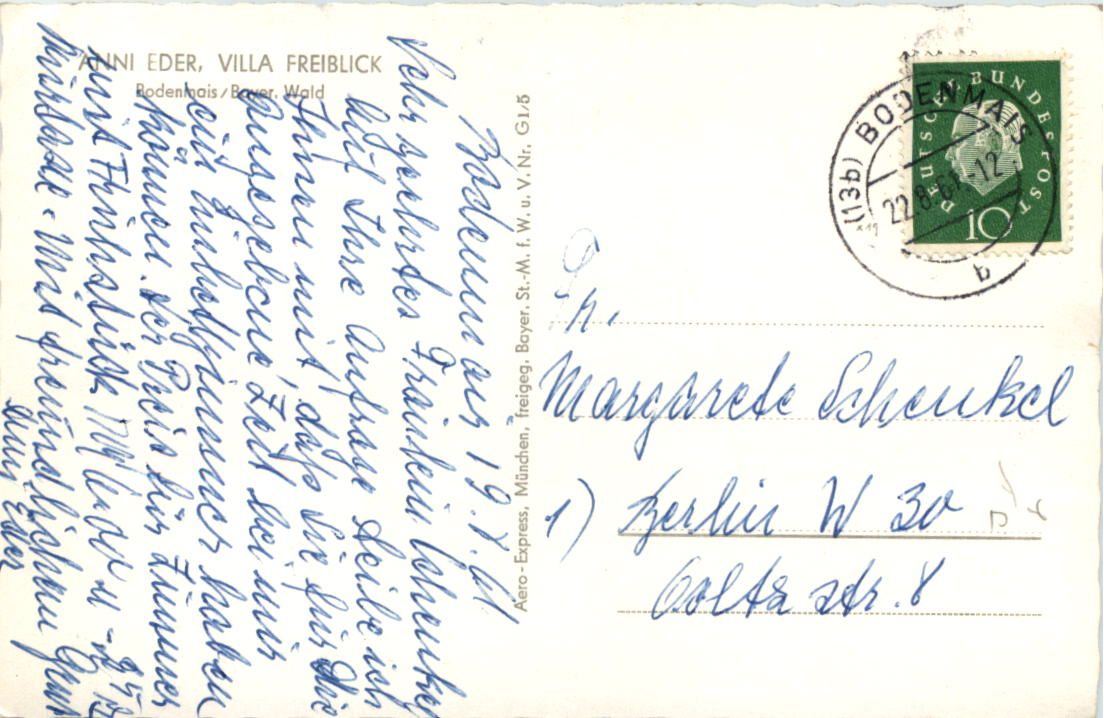 ANNI EDER, VILLA FREIBLICK
Bodenmais / Bayer. Wald
Bodenmais 19.8.61
Sehr geehrtes Fräulein Schenkel
Auf Ihre Anfrage teile ich
Ihnen mit, daß Sie für die
angegebene Zeit bei mir
ein Zimmer haben
können. Der Preis für Zimmer
mit Frühstück
Mit freundlichem Gruß
Anni Eder
Aero-Express, München, freigeg. Bayer. St.-M. f. W. u. V. Nr. G1/5
DEUTSCHE BUNDESPOST
10
(13b) BODENMAIS
22.8.61-12
b
Fr.
Margarete Schenkel
1) Berlin W 30
Goltz str. 8